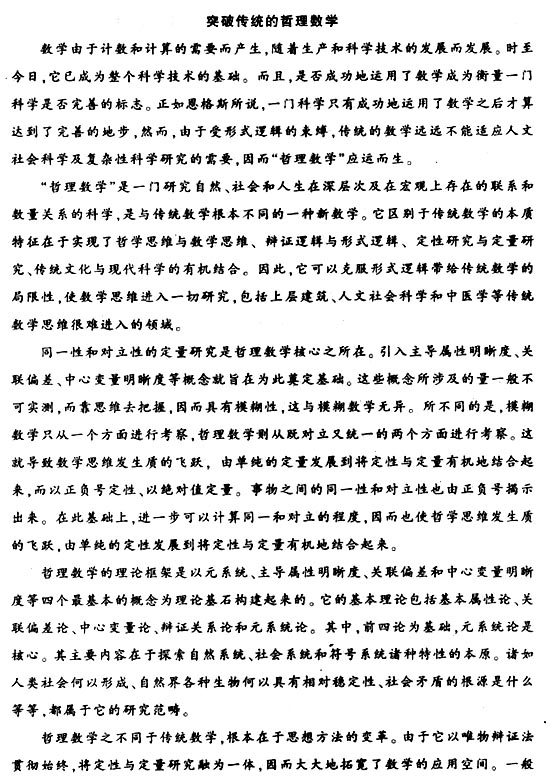 突破传统的哲理数学
数学由于计数和计算的需要而产生,随着生产和科学技术的发展而发展。时至
今日,它已成为整个科学技术的基础。而且,是否成功地运用了数学成为衡量一门
科学是否完善的标志。正如恩格斯所说,一门科学只有成功地运用了数学之后才算
达到了完善的地步,然而,由于受形式逻辑的束缚,传统的数学远远不能适应人文
社会科学及复杂性科学研究的需要,因而“哲理数学”应运而生。
“哲理数学”是一门研究自然、社会和人生在深层次及在宏观上存在的联系和
数量关系的科学,是与传统数学根本不同的一种新数学。它区别于传统数学的本质
特征在于实现了哲学思维与数学思维、辩证逻辑与形式逻辑、定性研究与定量研
究、传统文化与现代科学的有机结合。因此,它可以克服形式逻辑带给传统数学的
局限性,使数学思维进入一切研究,包括上层建筑、人文社会科学和中医学等传统
数学思维很难进入的领域。
同一性和对立性的定量研究是哲理数学核心之所在。引入主导属性明晰度、关
联偏差、中心变量明晰度等概念就旨在为此奠定基础。这些概念所涉及的量一般不
可实测,而靠思维去把握,因而具有模糊性,这与模糊数学无异。所不同的是,模糊
数学只从一个方面进行考察,哲理数学则从既对立又统一的两个方面进行考察。这
就导致数学思维发生质的飞跃,由单纯的定量发展到将定性与定量有机地结合起
来,而以正负号定性、以绝对值定量。事物之间的同一性和对立性也由正负号揭示
出来。在此基础上,进一步可以计算同一和对立的程度,因而也使哲学思维发生质
的飞跃,由单纯的定性发展到将定性与定量有机地结合起来。
哲理数学的理论框架是以元系统、主导属性明晰度、关联偏差和中心变量明晰
度等四个最基本的概念为理论基石构建起来的。它的基本理论包括基本属性论、关
联偏差论、中心变量论、辩证关系论和元系统论。其中,前四论为基础,元系统论是
核心。其主要内容在于探索自然系统、社会系统和符号系统诸种特性的本原。诸如
人类社会何以形成、自然界各种生物何以具有相对稳定性、社会矛盾的根源是什么
等等,都属于它的研究范畴。
哲理数学之不同于传统数学,根本在于思想方法的变革。由于它以唯物辩证法
贯彻始终,将定性与定量研究融为一体,因而大大地拓宽了数学的应用空间。一般